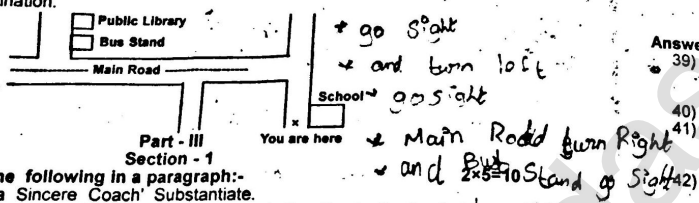 ination.
Public Library
Bus Stand
Main Road
School
You are here
× 
* go Sight
* and turn left
* go sight
* Main Road turn Right
* and Bus Stand go Sight
Answe
39)
40)
41)
42)
Part - III
Section - 1
2×5=10
ne following in a paragraph:-
a Sincere Coach' Substantiate.